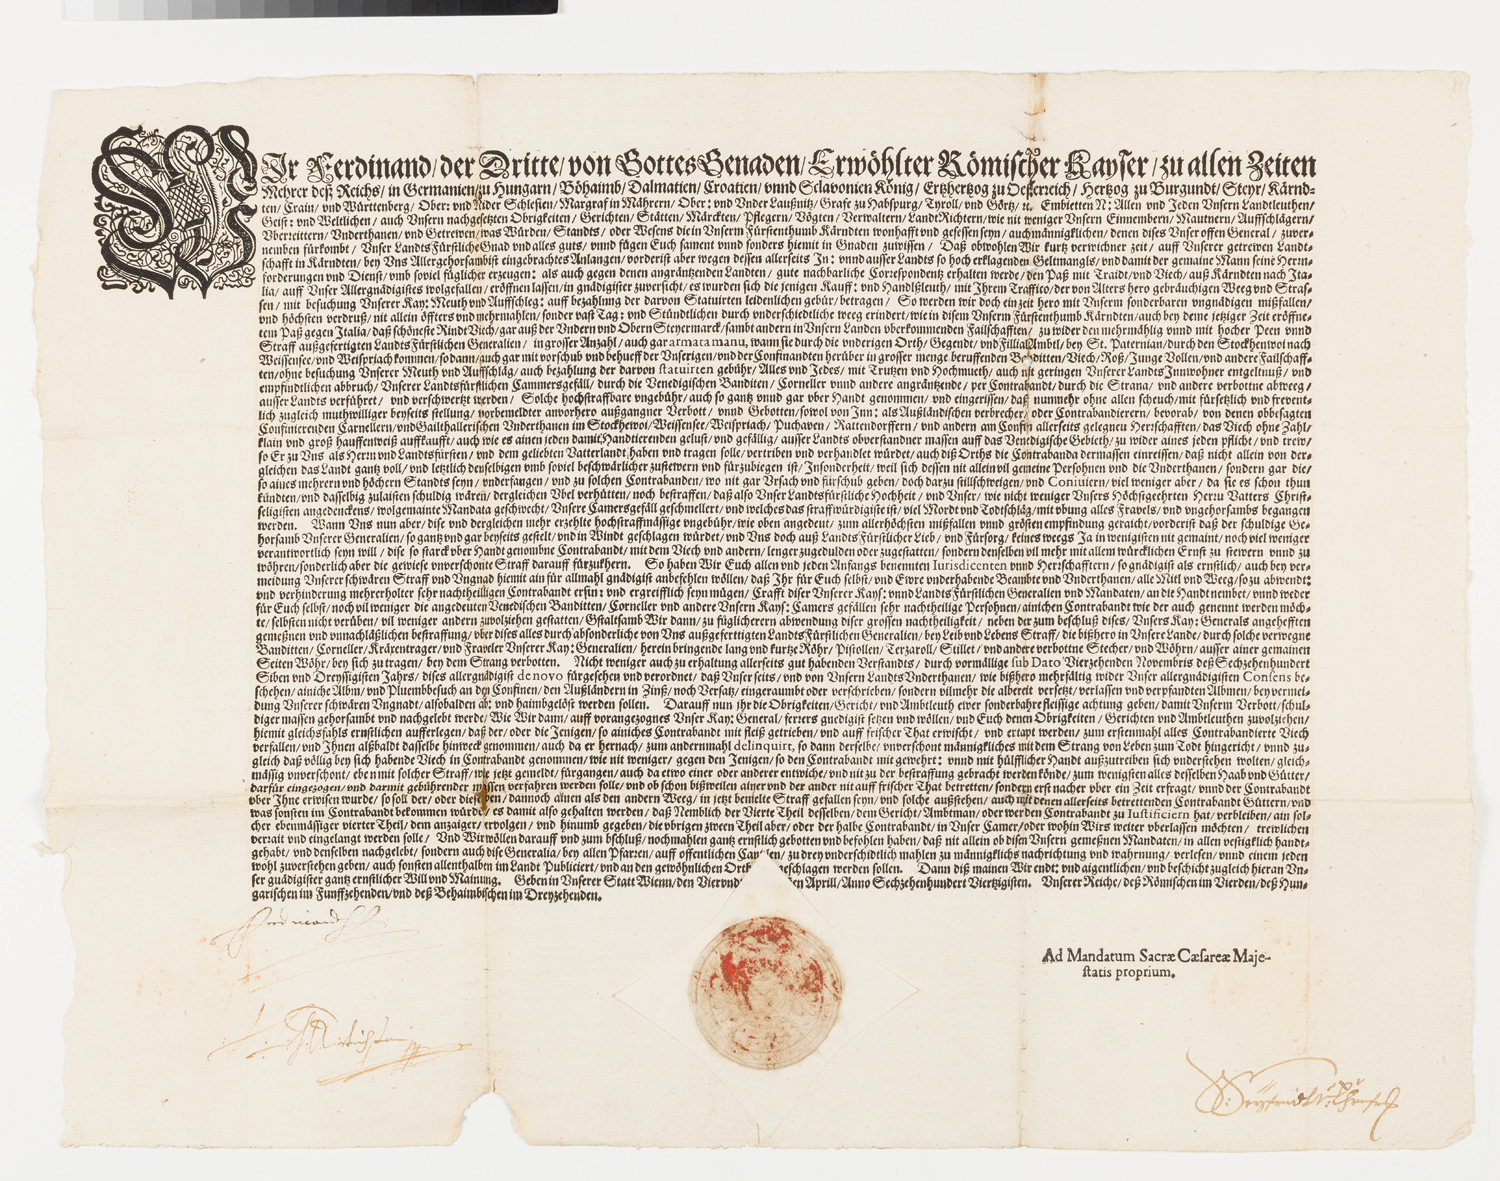 WIr Ferdinand/der Dritte/von Gottes Genaden/Erwöhlter Römischer Kayser/zu allen Zeiten
Mehrer deß Reichs/in Germanien/zu Hungarn/Böhaimb/Dalmatien/Croatien/vnnd Sclavonien König/Ertzhertzog zu Oesterreich/Hertzog zu Burgundt/Steyr/Kärnd-
ten/Crain/vnd Württenberg/Ober: vnd Nider Schlesien/Margraf in Mährern/Ober: vnd Vnder Laußnitz/Grafe zu Habspurg/Tyroll/vnd Görtz/ꝛc. Embietten N: Allen vnd Jeden Vnsern Landtleuthen/
Geist: vnd Weltlichen/auch Vnsern nachgesetzten Obrigkeiten/Gerichten/Stätten/Märckten/Pflegern/Vögten/Verwaltern/LandtRichtern/wie nit weniger Vnsern Einnembern/Mautnern/Auffschlägern/
Vberreittern/Vnderthanen/vnd Getrewen/was Würden/Standts/oder Wesens die in Vnserm Fürstenthumb Kärndten wonhafft vnd gesessen seyn/auch männigklichen/denen dises Vnser offen General/zuver-
nemben fürkombt/Vnser LandtsFürstliche Gnad vnd alles guts/vnnd fügen Euch sament vnnd sonders hiemit in Gnaden zuwissen/Daß obwohlen Wir kurtz verwichner zeit/auff Vnserer getrewen Landt-
schafft in Kärndten/bey Vns Allergehorsambist eingebrachtes Anlangen/vorderist aber wegen dessen allerseits In: vnnd ausser Landts so hoch erklagenden Geltmangls/vnd damit der gemaine Mann seine Herrn-
forderungen vnd Dienst/vmb soviel füglicher erzeugen: als auch gegen denen angräntzenden Landten/gute nachbarliche Correspondentz erhalten werde/den Paß mit Traidt/vnd Viech/auß Kärndten nach Ita-
lia/auff Vnser Allergnädigistes wolgefallen/eröffnen lassen/in gnädigister zuversicht/es wurden sich die jenigen Kauff: vnd Handlßleuth/mit Ihrem Traffico/der von Alters hero gebräuchigen Weeg vnd Stras-
sen/mit besuchung Vnserer Kay: Meuth vnd Auffschleg: auff bezahlung der darvon Statuirten leidenlichen gebür/betragen/So werden wir doch ein zeit hero mit Vnserm sonderbaren vngnädigen mißfallen/
und höchsten verdruß/nit allein öffters vnd mehrmahlen/sonder vast Tag: vnd Stündtlichen durch vnderschiedtliche weeg erindert/wie in disem Vnserm Fürstenthumb Kärndten/auch bey deme jetziger Zeit eröffne-
tem Paß gegen Italia/daß schöneste RindtViech/gar auß der Vndern vnd Obern Steyermarck/sambt andern in Vnsern Landen vberkommenden Failschafften/zu wider den mehrmählig vnnd mit hocher Peen vnnd
Straff außgefertigten LandtsFürstlichen Generalien/in grosser Anzahl/auch gar armata manu, wann sie durch die vnderigen Orth/Gegendt/vnd Fillial Ambtl/bey St. Paternian/durch den Stockhenwoi nach
Weissensee/vnd Weispriach kommen/sodann/auch gar mit vorschub vnd behueff der Vnserigen/vnd der Confinandten herüber in grosser menge beruffenden Banditten/Viech/Roß/Junge Vollen/vnd andere Failschaff-
ten/ohne besuchung Vnserer Meuth vnd Auffschläg/auch bezahlung der darvon statuirten gebühr/Alles vnd Jedes/mit Trutzen vnd Hochmueth/auch nit geringen Vnserer LandtsInnwohner entgeltnuß/vnd
empfindtlichen abbruch/Vnserer Landtsfürstlichen Cammersgefäll/durch die Venedigischen Banditen/Corneller vnnd andere angräntzende/per Contrabandt/durch die Strana/vnd andere verbottne abweeg/
ausser Landts verführet/vnd verschwertzt werden/Solche hochstraffbare vngebühr/auch so gantz vnnd gar vber Handt genommen/vnd eingerissen/daß nunmehr ohne allen scheuch/mit fürsetzlich vnd frevent-
lich zugleich muthwilliger beyseits stellung/vorbemeldter anvorhero außgangner Verbott/vnnd Gebotten/sowol von Inn: als Außländischen verbrecher/oder Contrabandierern/bevorab/von denen obbesagten
Confinierenden Carnellern/vnd Gailthallerischen Vnderthanen im Stockhewoi/Weissensee/Weispriach/Puchaven/Rattendorffern/vnd andern am Confin allerseits gelegnen Herrschafften/das Viech ohne Zahl/
klain vnd groß hauffenweiß auffkaufft/auch wie es ainen jeden damit Handtierenden gelust/vnd gefällig/ausser Landts obverstandner massen auff das Venedigische Gebieth/zu wider aines jeden pflicht/vnd trew/
so Er zu Vns als Herrn vnd Landtsfürsten/vnd dem geliebten Vatterlandt haben vnd tragen solle/vertriben vnd verhandlet würdet/auch diß Orths die Contrabanda dermassen einreissen/daß nicht allein von der-
gleichen das Landt gantz voll/vnd letzlich denselbigen vmb soviel beschwärlicher zustewern vnd fürzubiegen ist/Insonderheit/weil sich dessen nit allein vil gemeine Persohnen vnd die Vnderthanen/sondern gar die/
so aines mehrern vnd höchern Standts seyn/vnderfangen/vnd zu solchen Contrabanden/wo nit gar Vrsach vnd fürschub geben/doch darzu stillschweigen/vnd Coniuiern/viel weniger aber/da sie es schon thun
kündten/vnd dasselbig zulaisten schuldig wären/dergleichen Vbel verhütten/noch bestraffen/daß also Vnser Landtsfürstliche Hochheit/vnd Vnser/wie nicht weniger Vnsers Höchstgeehrten Herrn Vatters Christ-
seligisten angedenckens/wolgemainte Mandata geschwecht/Vnsere Camersgefäll geschmellert/vnd welches das straffwürdigiste ist/viel Mordt vnd Todtschläg/mit vbung alles Fravels/vnd vngehorsambs begangen
werden. Wann Vns nun aber/dise vnd dergleichen mehr erzehlte hochstraffmässige vngebühr/wie oben angedeut/zum allerhöchsten mißfallen vnnd grösten empfindung geraicht/vorderist daß der schuldige Ge-
horsamb Vnserer Generalien/so gantz vnd gar beyseits gestelt/vnd in Windt geschlagen würdet/vnd Vns doch auß LandtsFürstlicher Lieb/vnd Fürsorg/keines weegs Ja in wenigisten nit gemaint/noch viel weniger
verantwortlich seyn will/dise so starck vber Handt genombne Contrabandt/mit dem Viech vnd andern/lenger zugedulden oder zugestatten/sondern denselben vil mehr mit allem würcklichen Ernst zu stewern vnnd zu
wöhren/sonderlich aber die gewiese vnverschonte Straff darauff fürzukhern. So haben Wir Euch allen vnd jeden Anfangs benennten Iurisdicenten vnnd Herrschafftern/so gnädigist als ernstlich/auch bey ver-
meidung Vnserer schwären Straff vnd Vngnad hiemit ain für allmahl gnädigist anbefehlen wöllen/daß Ihr für Euch selbst/vnd Ewre vnderhabende Beambte vnd Vnderthanen/alle Mitl vnd Weeg/so zu abwendt:
vnd verhinderung mehrerholter sehr nachtheiligen Contrabandt ersin: vnd ergreifflich seyn mügen/Crafft diser Vnserer Kays: vnnd Landts Fürstlichen Generalien vnd Mandaten/an die Handt nembet/vnnd weder
für Euch selbst/noch vil weniger die angedeuten Venedischen Banditten/Corneller vnd andere Vnsern Kays: Camers gefällen sehr nachtheilige Persohnen/ainichen Contrabandt wie der auch genennt werden möch-
te/selbsten nicht verüben/vil weniger andern zuvolziehen gestatten/Gstaltsamb Wir dann/zu füglicherern abwendung diser grossen nachtheiligkeit/neben der zum beschluß dises/Vnsers Kay: Generals angehefften
gemeßnen vnd vnnachläßlichen bestraffung/vber dises alles durch absonderliche von Vns außgefertigten LandtsFürstlichen Generalien/bey Leib vnd Lebens Straff/die bißhero in Vnsere Lande/durch solche verwegne
Banditten/Corneller/Kräxentrager/vnd Fraveler Vnserer Kay: Generalien/herein bringende lang vnd kurtze Röhr/Pistollen/Terzaroll/Stillet/vnd andere verbottne Stecher/vnd Wöhrn/ausser ainer gemainen
Seiten Wöhr/bey sich zu tragen/bey dem Strang verbotten. Nicht weniger auch zu erhaltung allerseits gut habenden Verstandts/durch vormällige sub Dato Vierzehenden Novembris deß Sechzehenhundert
Siben vnd Dreyssigisten Jahrs/dises allergnädigist de novo fürgesehen vnd verordnet/daß Vnser seits/vnd von Vnsern LandtsVnderthanen/wie bißhero mehrfältig wider Vnser allergnädigisten Consens be-
schehen/ainiche Albm/vnd Pluembbesuch an den Confinen/den Außländern in Zinß/noch Versatz/eingeraumbt oder verschrieben/sondern vilmehr die albereit versetzt/verlassen vnd verpfandten Albmen/bey vermei-
dung Vnserer schwären Vngnadt/alsobalden ab: vnd haimbgelöst werden sollen. Darauff nun jhr die Obrigkeiten/Gericht/vnd Ambtleuth ewer sonderbahre fleissige achtung geben/damit Vnserm Verbott/schul-
diger massen gehorsambt vnd nachgelebt werde/Wie Wir dann/auff vorangezognes Vnser Kay: General/ferrers gnedigist setzen vnd wöllen/vnd Euch denen Obrigkeiten/Gerichten vnd Ambtleuthen zuvolziehen/
hiemit gleichsfahls ernstlichen aufferlegen/daß der/oder die Jenigen/so ainiches Contrabandt mit fleiß getrieben/vnd auff frischer That erwischt/vnd ertapt werden/zum erstenmahl alles Contrabandierte Viech
verfallen/vnd Ihnen alßbaldt dasselbe hinweck genommen/auch da er hernach/zum andernmahl delinquirt, so dann derselbe/vnverschont männigkliches mit dem Strang von Leben zum Todt hingericht/vnnd zu-
gleich daß völlig bey sich habende Viech in Contrabandt genommen/wie nit weniger/gegen den Jenigen/so den Contrabandt mit gewehrt: vnnd mit hülfflicher Handt außzutreiben sich vnderstehen wolten/gleich-
mässig vnverschont/eben mit solcher Straff/wie jetzt gemeldt/fürgangen/auch da etwo einer oder anderer entwiche/vnd nit zu der bestraffung gebracht werden könde/zum wenigsten alles desselben Haab vnd Gütter/
darfür eingezogen/vnd darmit gebührender wissen verfahren werden solle/vnd ob schon bißweilen ainer vnd der ander nit auff frischer That betretten/sondern erst nacher vber ein Zeit erfragt/vnnd der Contrabandt
vber Ihne erwisen wurde/so soll der/oder dieselben/dannoch ainen als den andern Weeg/in jetzt bemelte Straff gefallen seyn/vnd solche außstehen/auch mit denen allerseits betrettenden Contrabandt Güttern/vnd
was sonsten im Contrabandt bekommen würdt/es damit also gehalten werden/daß Nemblich der Vierte Theil desselben/dem Gericht/Ambtman/oder werden Contrabandt zu Iustificiern hat/verbleiben/ain sol-
cher ebenmässiger vierter Theil/dem anzaiger/ervolgen/vnd hinumb gegeben/die vbrigen zween Theil aber/oder der halbe Contrabandt/in Vnser Camer/oder wohin Wirs weiter vberlassen möchten/trewlichen
verrait vnd eingelangt werden solle/Vnd Wir wöllen darauff vnd zum bschluß/nochmahlen gantz ernstlich gebotten vnd befohlen haben/daß nit allein ob disen Vnsern gemeßnen Mandaten/in allen vestigklich handt-
gehabt/vnd denselben nachgelebt/sondern auch dise Generalia/bey allen Pfarren/auff offentlichen Cantzlen/zu drey vnderschidtlich mahlen zu männigklichs nachrichtung vnd wahrnung/verlesen/vnnd einem jeden
wohl zuversehen geben/auch sonsten allenthalben im Landt Publiciert/vnd an den gewöhnlichen Orth geschlagen werden sollen. Dann diß mainen Wir endt: vnd aigentlichen/vnd beschicht zugleich hieran Vn-
ser gnädigister gantz ernstlicher Will vnd Mainung. Geben in Vnserer Statt Wienn/den Viervnd en Aprill/Anno Sechzehenhundert Viertzigisten. Vnserer Reiche/deß Römischen im Vierden/deß Hun-
garischen im Funffzehenden/vnd deß Behaimbischen im Dreyzehenden.
Ferdinandt
Ad Mandatum Sacræ Cæsareæ Maje-
statis proprium.